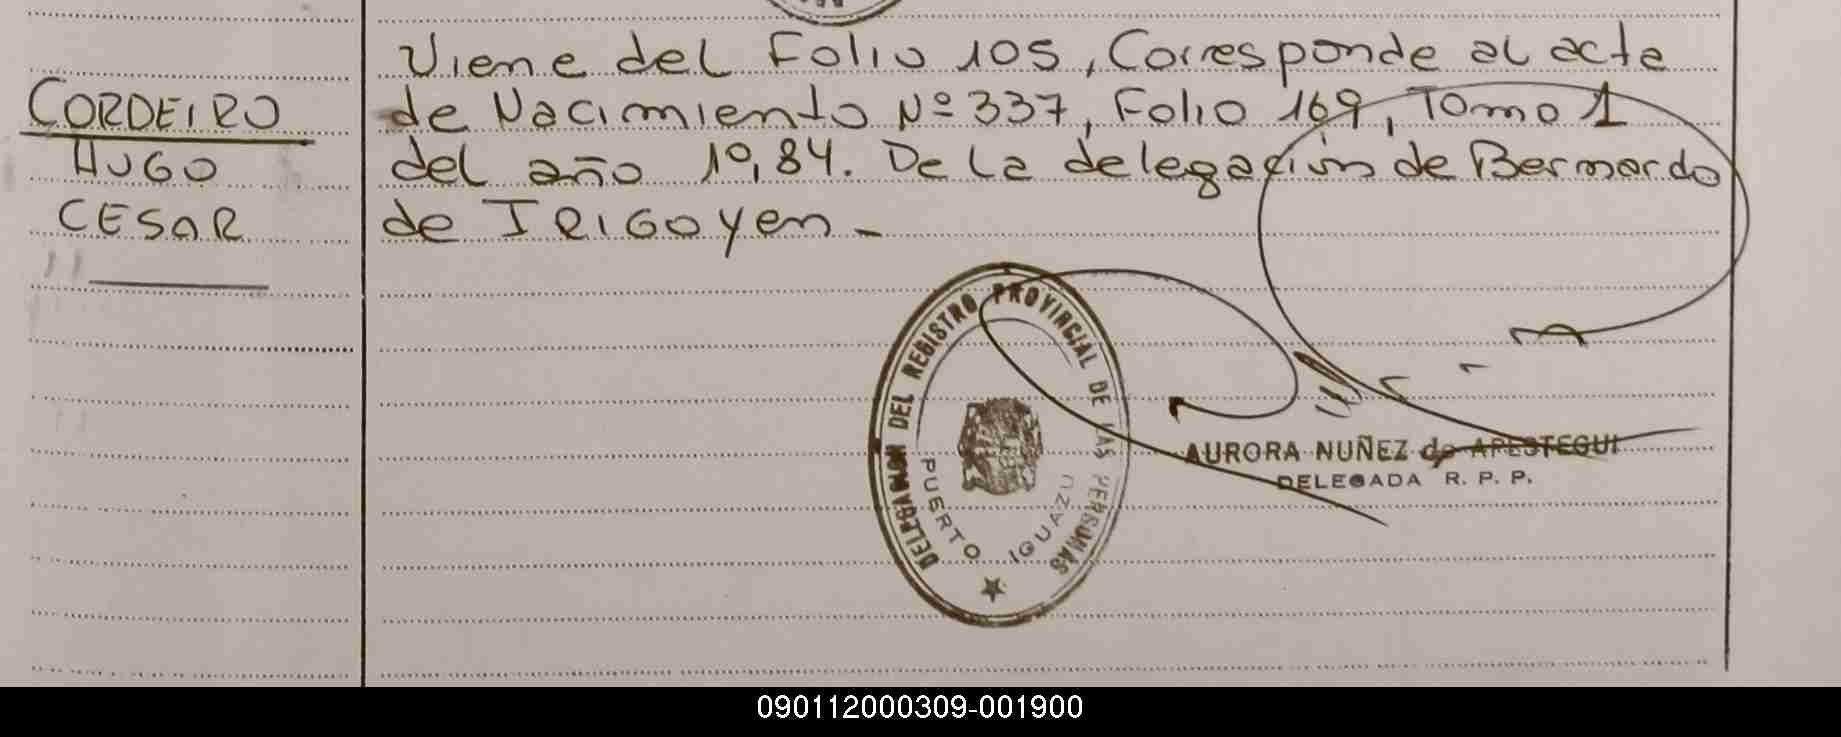 CORDEIRO
HUGO
CESAR
Viene del Folio 105, Corresponde al acta
de Nacimiento Nº 337, Folio 169, Tomo 1
del año 19,84. De la delegación de Bernardo
de IRIGOYen -
DELEGACION DEL REGISTRO PROVINCIAL DE LAS PERSONAS
PUERTO IGUAZU
AURORA NUÑEZ de APESTEGUI
DELEGADA R. P. P.
090112000309-001900